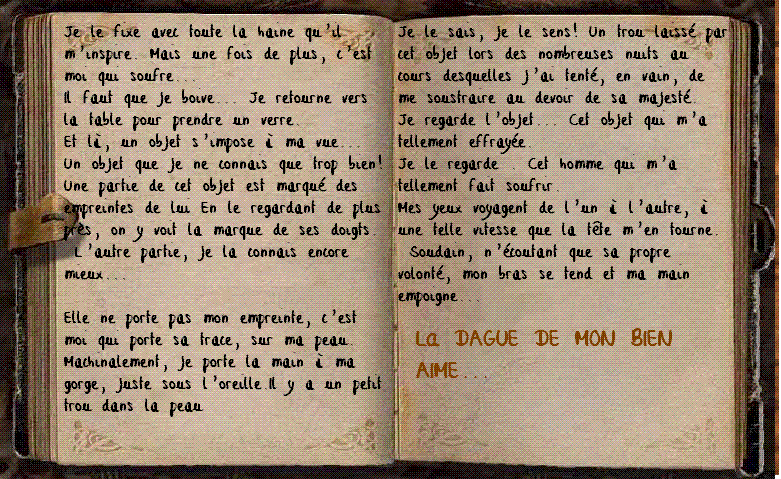 Je le fixe avec toute la haine qu'il
m'inspire. Mais une fois de plus, c'est
moi qui soufre...
Il faut que je boive... Je retourne vers
la table pour prendre un verre.
Et là, un objet s'impose à ma vue...
Un objet que je ne connais que trop bien!
Une partie de cet objet est marqué des
empreintes de lui En le regardant de plus
près, on y voit la marque de ses doigts.
L'autre partie, je la connais encore
mieux...
Elle ne porte pas mon empreinte, c'est
moi qui porte sa trace, sur ma peau.
Machinalement, je porte la main à ma
gorge, juste sous l'oreille.Il y a un petit
trou dans la peau
Je le sais, je le sens! Un trou laissé par
cet objet lors des nombreuses nuits au
cours desquelles j'ai tenté, en vain, de
me soustraire au devoir de sa majesté.
Je regarde l'objet... Cet objet qui m'a
tellement effrayée.
Je le regarde... Cet homme qui m'a
tellement fait souffrir.
Mes yeux voyagent de l'un à l'autre, à
une telle vitesse que la tête m'en tourne.
Soudain, n'écoutant que sa propre
volonté, mon bras se tend et ma main
empoigne...
La DAGUE DE MON BIEN
AIME...